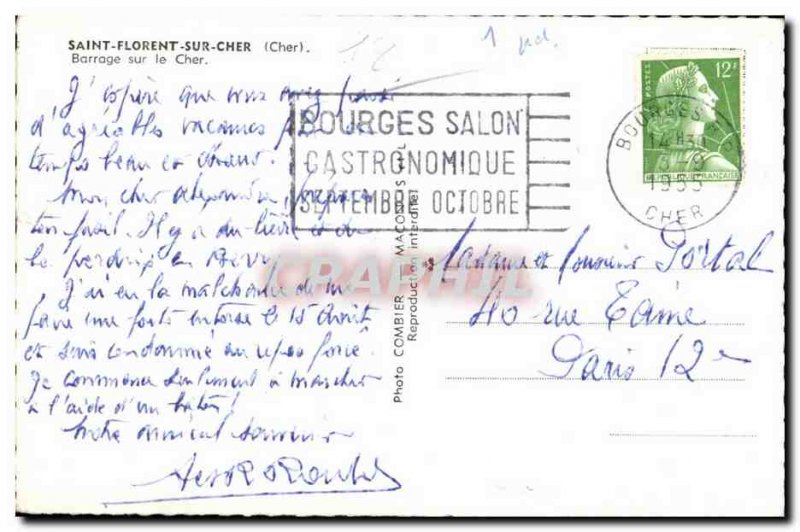 SAINT-FLORENT-SUR-CHER (Cher).
Barrage sur le Cher.
1 pd.
J'espère que vous avez passé
d'agréables vacances par
temps beau et chaud.
Mon cher
ton fusil. Il y a du lièvre et de
la perdrix en
J'ai eu la malchance de me
faire une forte entorse le 15 Août
et suis condamné au repos forcé.
Je commence seulement à marcher
à l'aide d'un bâton !
Notre amical souvenir
BOURGES SALON
GASTRONOMIQUE
SEPTEMBRE OCTOBRE
POSTES
12F
REPUBLIQUE FRANÇAISE
BOURGES
14 H
1955
CHER
Photo COMBIER MACON
Reproduction interdite
CPAPHIL
Madame et Monsieur Portal
40 rue Taine
Paris 12e